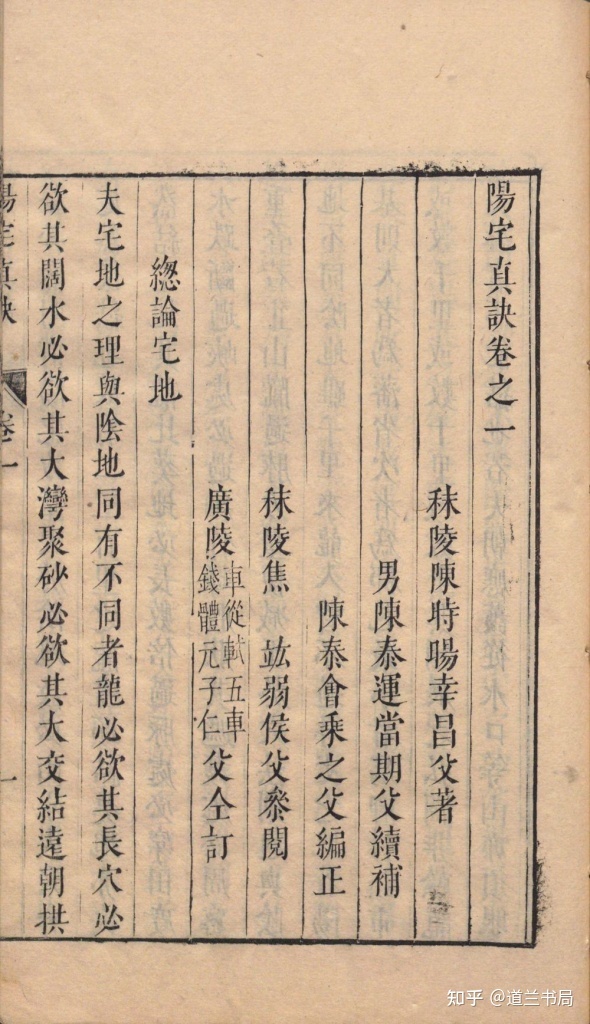 陽宅真訣卷之一
秣陵陳時暘幸昌父著
男陳泰運當期父續補
陳泰會乘之父編正
秣陵焦竑弱侯父叅閱
廣陵車從軾五車錢體元子仁父仝訂
總論宅地
夫宅地之理與陰地同有不同者龍必欲其長穴必
欲其闊水必欲其大灣聚砂必欲其大交結遠朝拱
陽宅真訣 卷一 一
知乎 @道兰书局